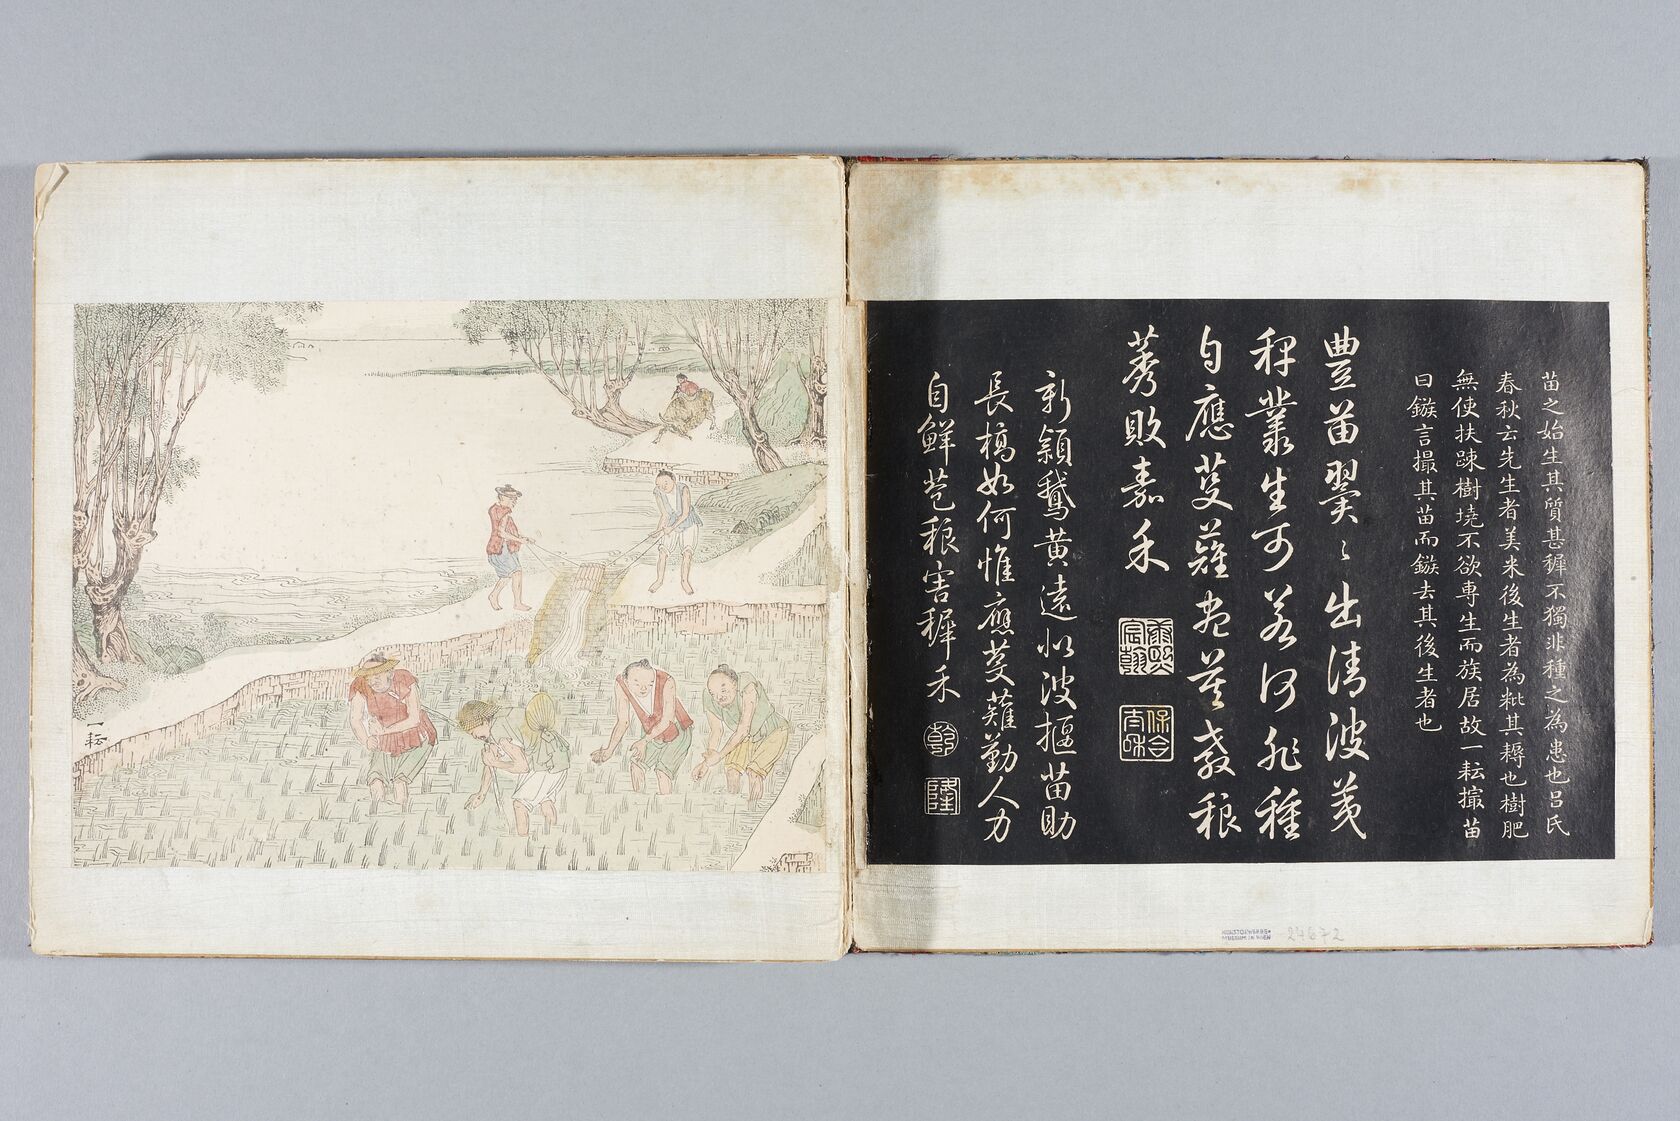 苗之始生其質甚穉不獨非種之為患也呂氏
春秋云先生者美米後生者為粃其耨也樹肥
無使扶踈樹墝不欲專生而族居故一耘撮苗
曰鏃言撮其苗而鏃去其後生者也
豊苗翼〻出清波荑
稗叢生可若何非種
自應芟薙盡莫教稂
莠敗嘉禾
康熙
宸翰
保合
太和
新穎鵞黄遠似波揠苗助
長槁如何惟應芟薙勤人力
自鮮苞稂害穉禾
乾
隆
一耘
24872